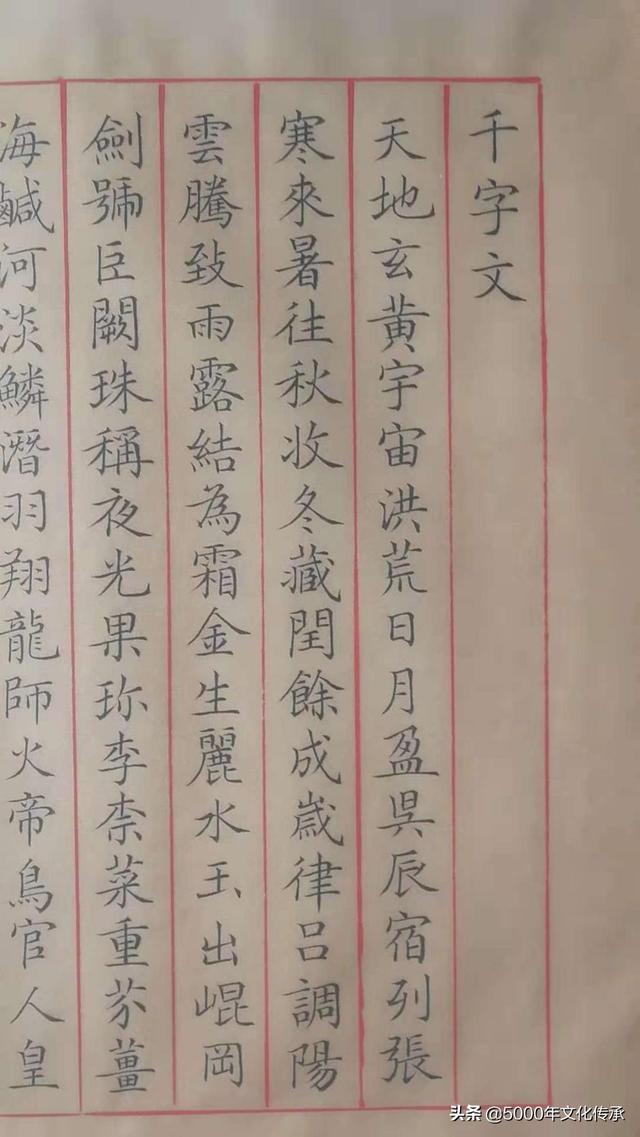 千字文
天地玄黃宇宙洪荒日月盈昃辰宿列張
寒來暑往秋收冬藏閏餘成歲律呂調陽
雲騰致雨露結為霜金生麗水玉出崐岡
劍號巨闕珠稱夜光果珎李柰菜重芥薑
海鹹河淡鱗潛羽翔龍師火帝鳥官人皇
头条 @5000年文化传承